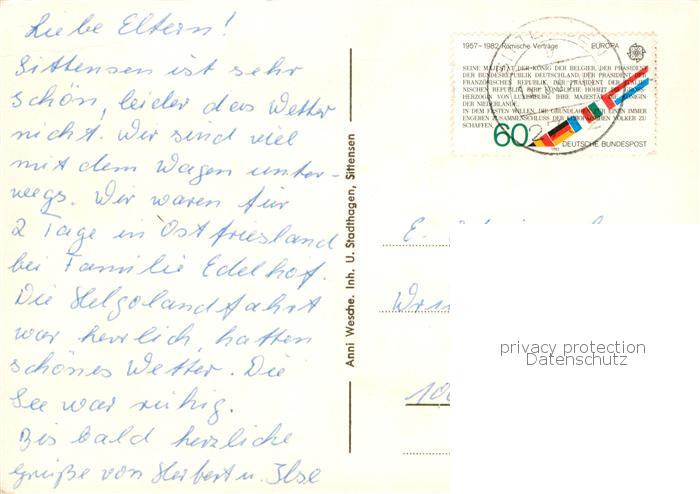 Liebe Eltern!
Sittensen ist sehr
schön, leider das Wetter
nicht. Wir sind viel
mit dem Wagen unter-
wegs. Wir waren für
2 Tage in Ostfriesland
bei Familie Edelhof.
Die Helgolandfahrt
war herrlich, hatten
schönes Wetter. Die
See war ruhig.
Bis bald herzliche
Grüße von Herbert u. Ilse
Anni Wesche. Inh. U. Stadthagen, Sittensen
1957-1982 Römische Verträge EUROPA
SEINE MAJESTÄT DER KÖNIG DER BELGIER, DER PRÄSIDENT
DER BUNDESREPUBLIK DEUTSCHLAND, DER PRÄSIDENT DER
FRANZÖSISCHEN REPUBLIK, DER PRÄSIDENT DER ITALIE-
NISCHEN REPUBLIK, IHRE KÖNIGLICHE HOHEIT DIE GROSS-
HERZOGIN VON LUXEMBURG, IHRE MAJESTÄT DIE KÖNIGIN
DER NIEDERLANDE,
IN DEM FESTEN WILLEN, DIE GRUNDLAGEN FÜR EINEN IMMER
ENGEREN ZUSAMMENSCHLUSS DER EUROPÄISCHEN VÖLKER ZU
SCHAFFEN,
60
1982
DEUTSCHE BUNDESPOST
E.
100
privacy protection
Datenschutz